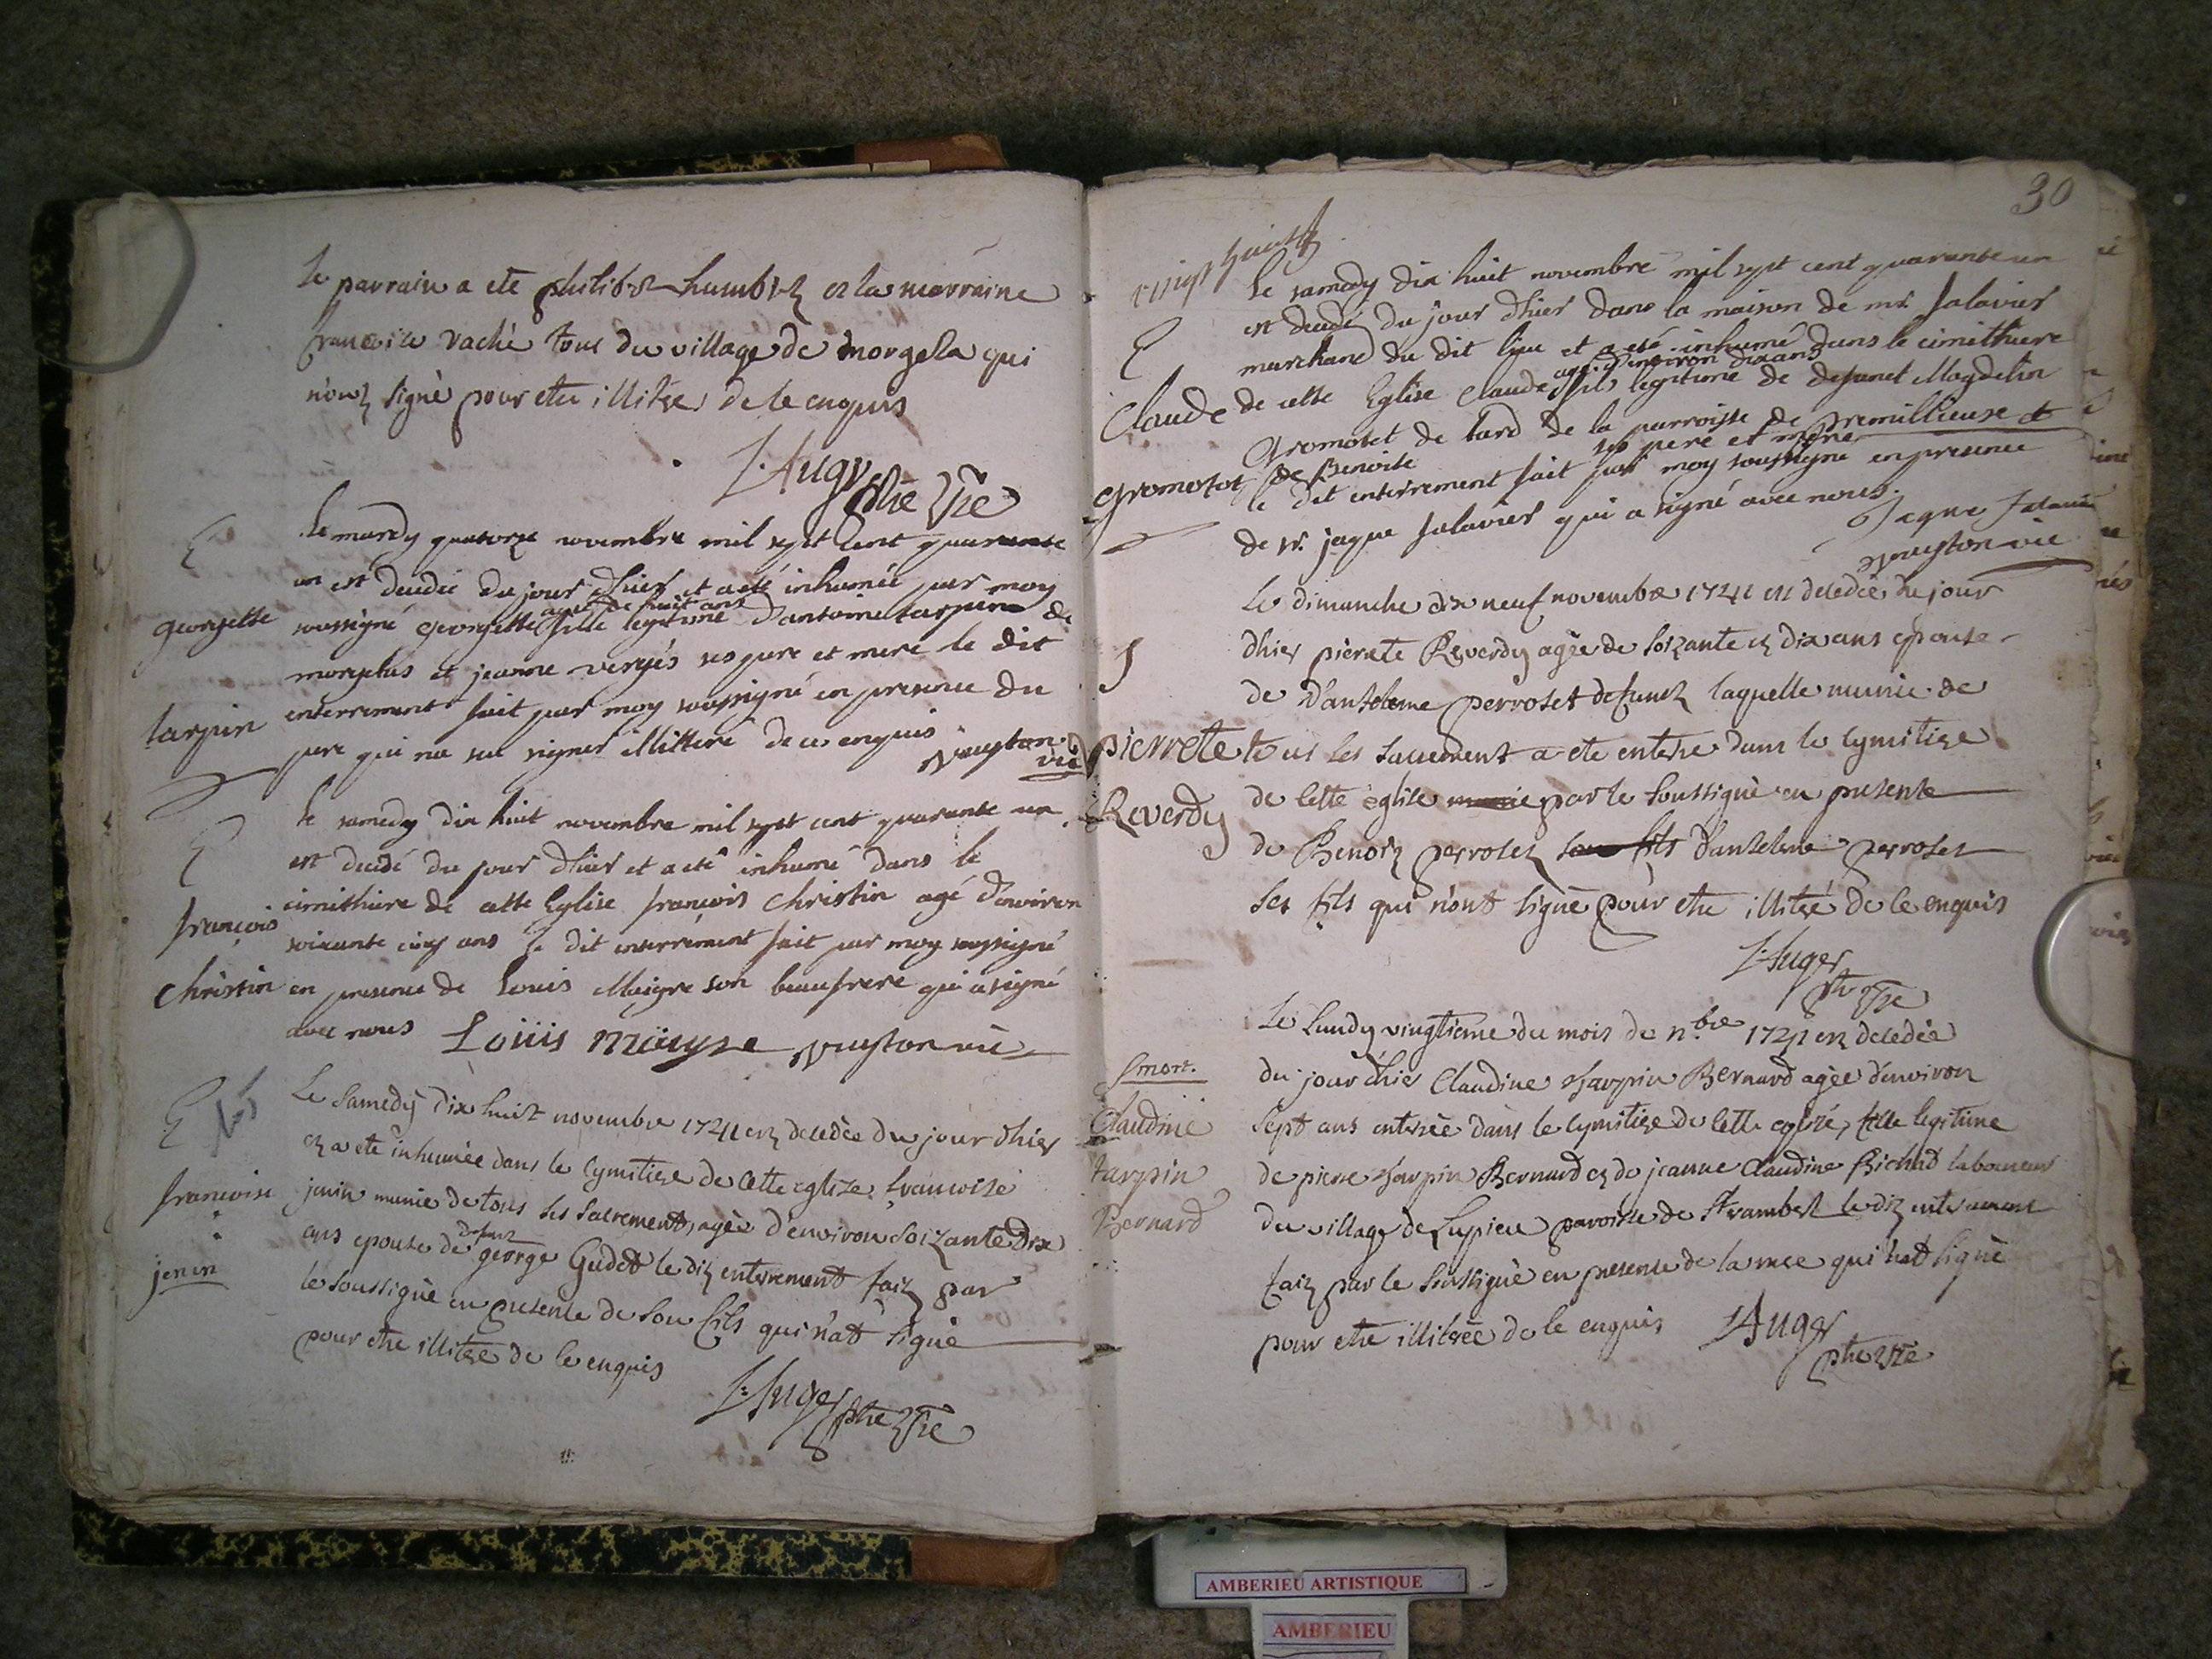 le parrain a ete philibert humbert et la marraine
francoise vachè tous du village de morgela qui
n'ont signè pour etre illitre de ce enquis
J: Auger
ptre vre
E
georgette
tarpin
le mardy quatorze novembre mil sept cent quarante
un est decedée du jour d'hier et a eté inhumée par moy
agée de huit ans
soussigné georgette fille legitime d'antoine tarpin de
morgelas et jeanne verjés ses pere et mere le dit
enterrement fait par moy soussigné en presence du
pere qui n'a su signer illitteré de ce enquis
vic
E
françois
christin
le samedy dix huit novembre mil sept cent quarante un
est decedé du jour d'hier et a eté inhumé dans le
cimithiere de cette Eglise françois christin agé d'environ
soixante cinq ans le dit enterrement fait par moy soussigné
en presence de Louis Maigre son beaufrere qui a signé
avec nous Loüis maigre vic
E
francoise
jenin
Le Samedy dix huit novembre 1741 est decedèe du jour d'hier
et a ete inhumée dans le cymitiere de cette eglise francoise
jenin munie de tous les sacrements, agèe d'environ soizante dix
defunt
ans epouse de george Gudet le dit enterrement fait par
le soussignè en presence de son fils qui n'at signè
pour etre illitre de ce enquis
J: Auger
ptre vre
30
vingt huit
E
Claude
gromotot
le samedy dix huit novembre mil sept cent quarante un
est decedé du jour d'hier dans la maison de mr. Salavier
marchand du dit lieu et a eté inhumé dans le cimithiere
agé d'environ dix ans
de cette Eglise Claude fils legitime de defunct Magdelin
gromotet de tard de la parroisse de premillieuse et
de Benoite ses pere et mere
le dit enterrement fait par moy soussigné en presence
de sr. jaque Salavier qui a signé avec nous.
vic
S
pierrette
Reverdy
Le dimanche dix neuf novembre 1741 est decedèe du jour
d'hier pierrete Reverdy agèe de soizante et dix ans epouse
de d'anteleme perroset defunct laquelle munie de
tous les sacrement a ete enterre dans le cymitiere
de cette èglise munie par le soussignè en presence
de Benoit perroset son fils d'anteleme perroset
ses fils qui n'ont signè pour etre illitré de ce enquis
J: Auger
ptr vre
mort.
Claudine
tarpin
Bernard
Le Lundy vingtieme du mois de n.bre 1741 est decedèe
du jour d'hier Claudine tarpin Bernard agèe d'environ
sept ans enterrèe dans le cymitiere de cette eglise, fille legitime
de pierre tarpin Bernard et de jeanne Claudine Bichad laboureur
du village de Lupieu paroisse de St rambert le dit enterrement
fait par le soussignè en presence de la mere qui n'at signè
pour etre illitrèe de ce enquis J Auger
ptre vre
AMBERIEU ARTISTIQUE
AMBERIEU